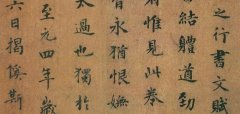 之行書文賦
結體遒勁
者惟見此卷
智永猶恨嫵
太過也獨於
至元四年歲
六日揭傒斯